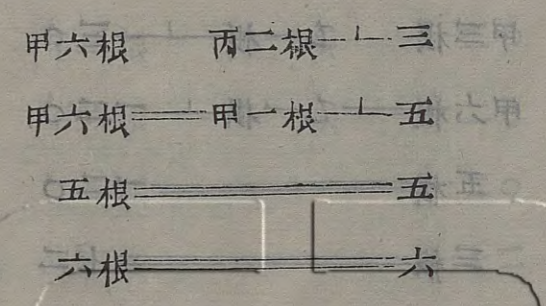 甲六根 丙二根─┴三
甲六根══甲一根─┴五
五根══五
六根══六